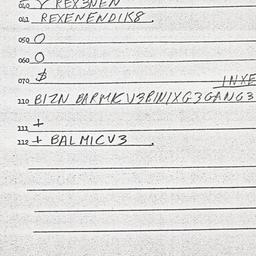 040 Y REX3NEN
041 REXENENDIK8.
050 O
060 O
070 $
INXE
110 BIZN BARMKV3BINIXG3GANG3
111 +
112 + BALMICV3.